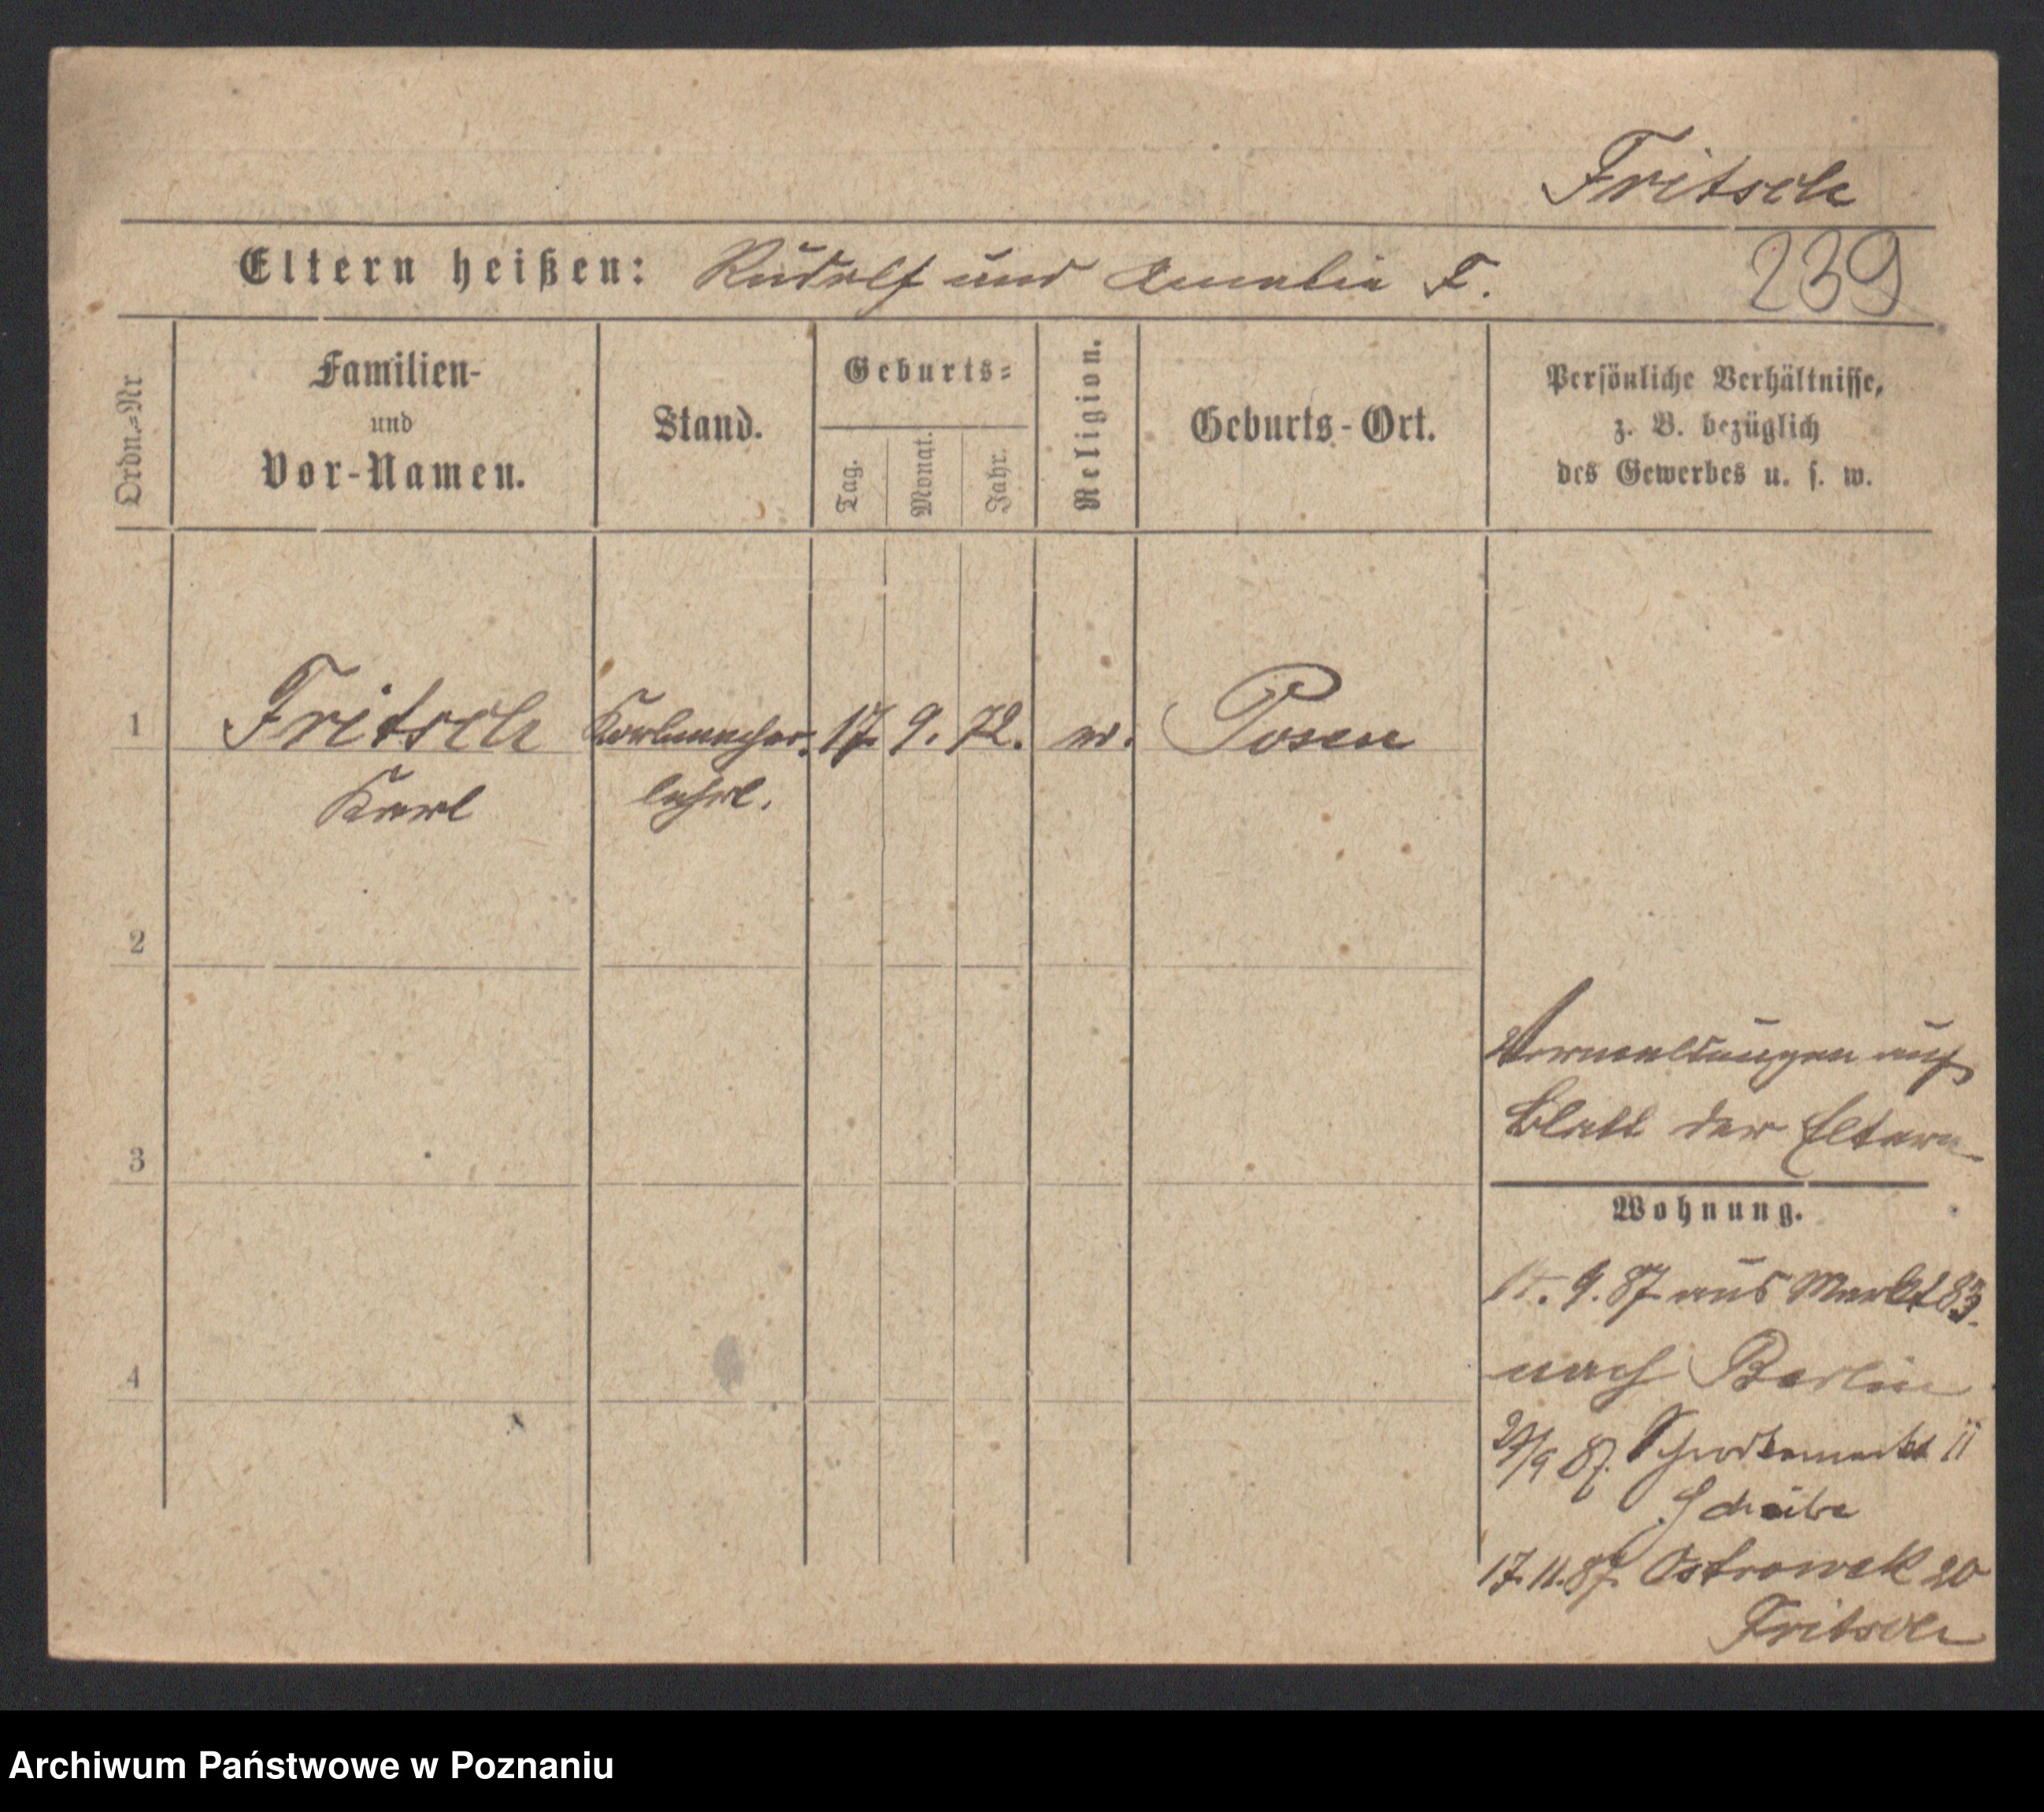 Fritsch
Eltern heißen: Rudolf und Amalia F.
239
Ordn.=Nr
Familien-
und
Vor-Namen.
Stand.
Geburts=
Tag.
Monat.
Jahr.
Religion.
Geburts-Ort.
Persönliche Verhältnisse,
z. B. bezüglich
des Gewerbes u. s. w.
1 Fritsch Korbmacher- 17. 9. 72. Posen
Karl lehrl.
2
3
4
Vermeldungen auf
Blatt der Eltern
Wohnung.
9. 87 aus Markt 83.
nach Berlin
/9 87. Schrodkamarkt 11
17.11.87. Ostrowek 20
Fritsch
Archiwum Państwowe w Poznaniu